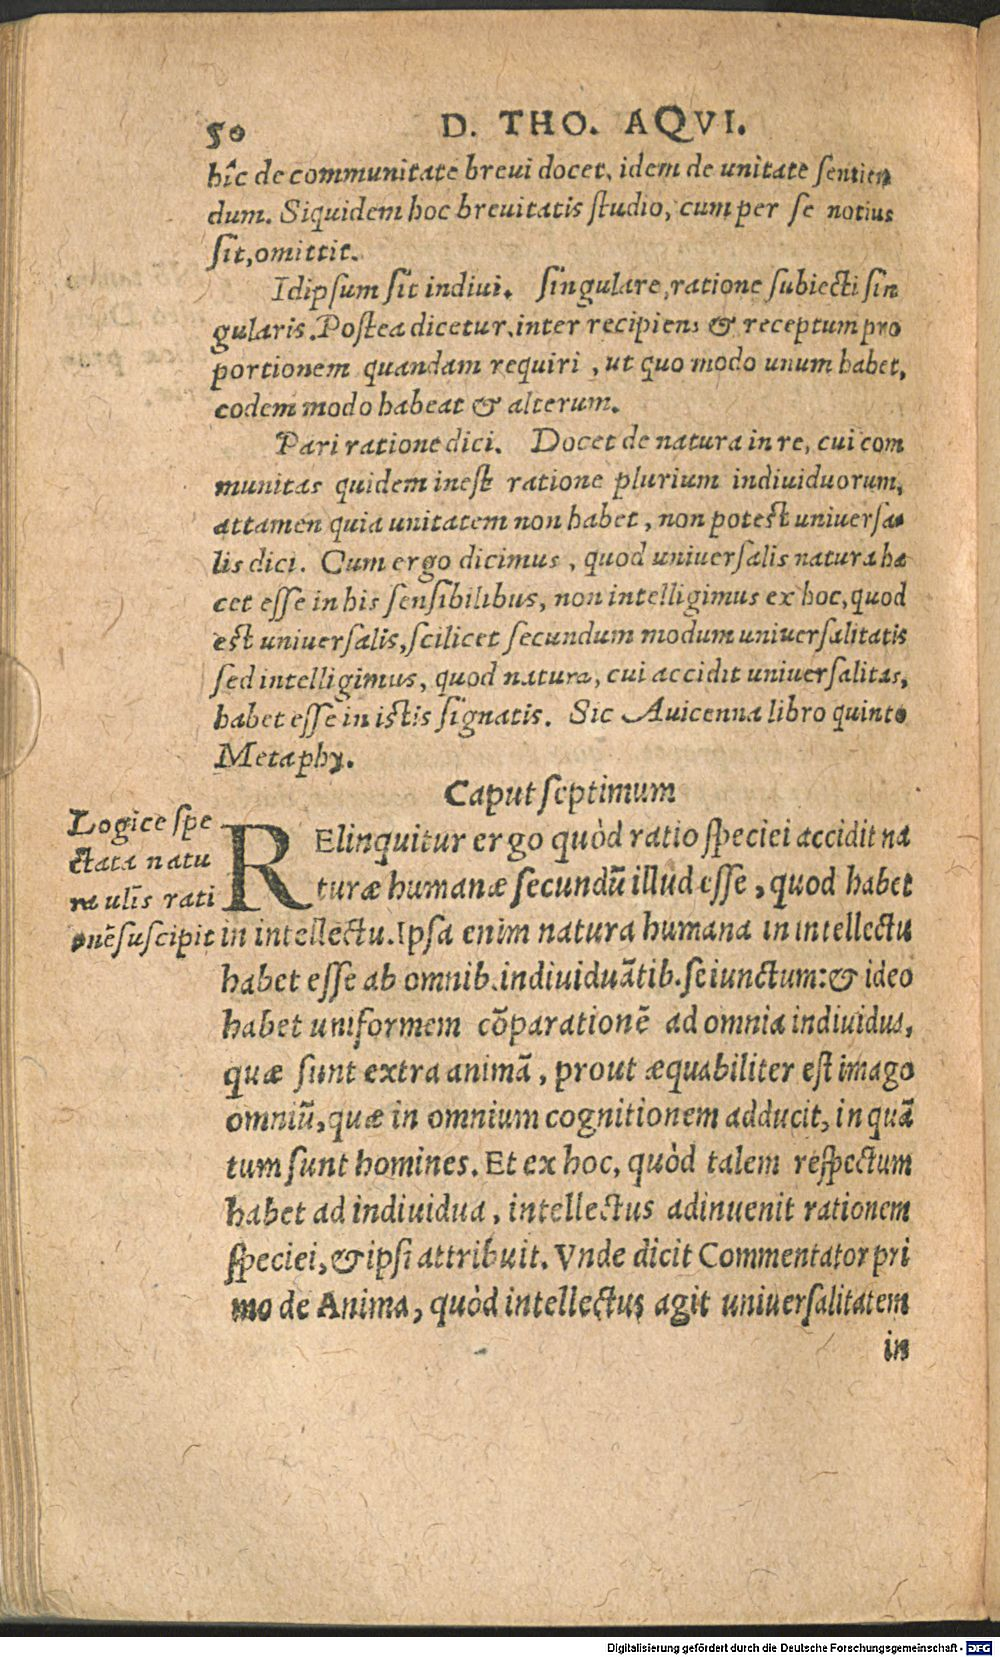 50
D. THO. AQVI.
hîc de communitate brevi docet, idem de unitate sentien
dum. Siquidem hoc breuitatis studio, cum per se notius
sit, omittit.
Idipsum sit indiui. singulare, ratione subiecti sin
gularis. Postea dicetur, inter recipiens & receptum pro
portionem quandam requiri, ut quo modo unum habet,
eodem modo habeat & alterum.
Pari ratione dici. Docet de natura in re, cui com
munitas quidem inest ratione plurium indiuiduorum,
attamen quia unitatem non habet, non potest uniuersa
lis dici. Cum ergo dicimus, quod uniuersalis natura ha
cet esse in his sensibilibus, non intelligimus ex hoc, quod
est uniuersalis, scilicet secundum modum uniuersalitatis
sed intelligimus, quod natura, cui accidit uniuersalitas,
habet esse in istis signatis. Sic Auicenna libro quinto
Metaphy.
Caput septimum
Logice spe
ctata natu
ra ul̃is rati
onẽ suscipit
RElinquitur ergo quòd ratio speciei accidit na
turæ humanæ secundũ illud esse, quod habet
in intellectu. Ipsa enim natura humana in intellectu
habet esse ab omnib. indiuiduãtib. seiunctum: & ideo
habet uniformem cõparationẽ ad omnia indiuidua,
quæ sunt extra animã, prout æquabiliter est imago
omniũ, quæ in omnium cognitionem adducit, in quã
tum sunt homines. Et ex hoc, quòd talem respectum
habet ad indiuidua, intellectus adinuenit rationem
speciei, & ipsi attribuit. Vnde dicit Commentator pri
mo de Anima, quòd intellectus agit uniuersalitatem
in
Digitalisierung gefördert durch die Deutsche Forschungsgemeinschaft - DFG